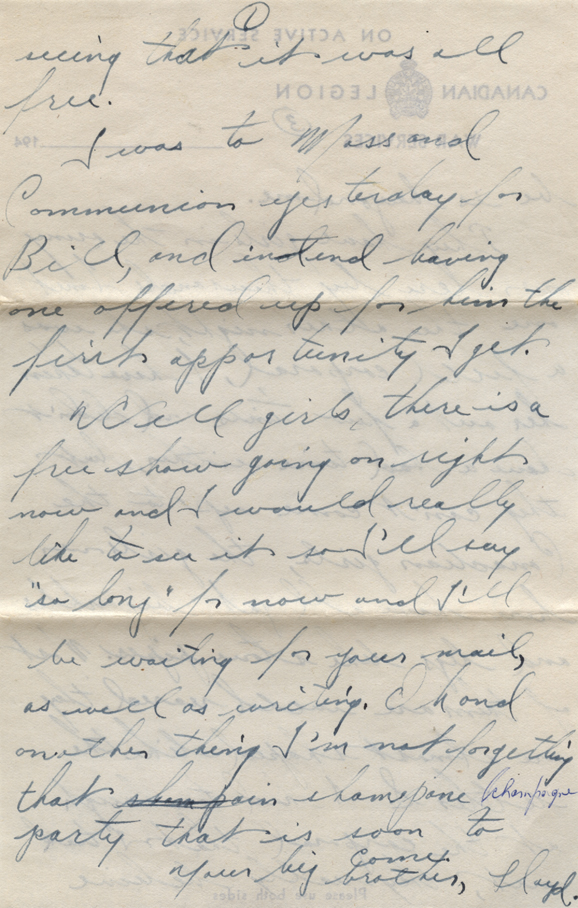 seeing that it was all
free.
I was to Mass and
Communion yesterday for
Bill, and intend having
one offered up for him the
first opportunity I get.
Well girls, there is a
free show going on right
now and I would really
like to see it so I'll say
"so long" for now and I'll
be waiting for your mail,
as well as writing. Oh and
another thing I'm not forgetting
that pain shampane Champagne
party that is soon to
come.
Your big brother, Lloyd.
ON ACTIVE SERVICE
CANADIAN LEGION
WAR SERVICES
194
Please use both sides